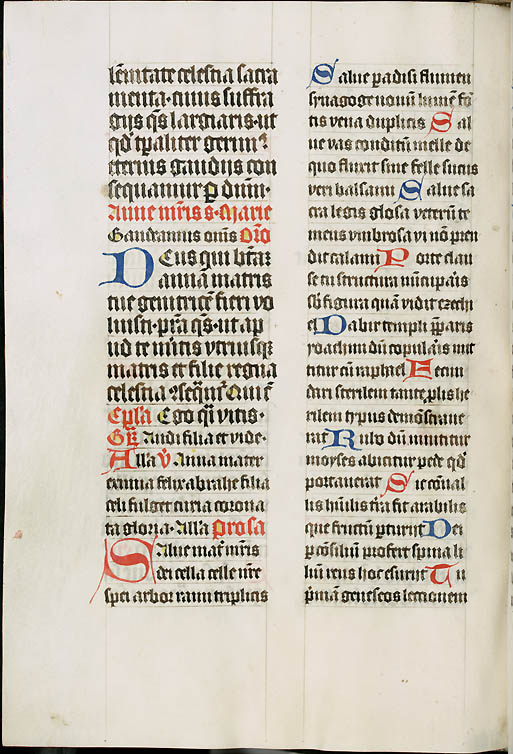 lēnitate celestia sacra
menta · cuius suffra
gijs q̄s largiaris · ut
qd̓ tp̄aliter gerim᷒
eternis gaudijs con
sequamur p̲ dūm ·
Anne mr̄is s · Marie
Gaudeamus om̄s Or̄o
Deus qui btāz
annā matris
tue genitricē fieri vo
luisti · pr̄a q̄s · ut ap
ud te mītis utriusqz
matris et filie regna
celestia Qui ē
Ep̄la Ego qͣi vitis ·
Gr̄ Audi filia et vide ·
Alla v̄ Anna mater
eximia felix abrahe filia
celi fulget curia corona
ta gloria · Alla Prosa
Salue mat̓ mr̄is
dei cella celle vr̄e
spei arbor rami triplicis
Salue padisi flumen
synagoge nouū lumē fō
tis vena duplicis Sal
ue vas conditū melle de
quo fluxit sine felle sucus
veri balsami Salue sa
cra legis glosa veterū te
mens umbrosa vi nō pren
dit calami Porte clau
se tu structura nūcpaīs
sb̄ figura quā vidit ezechi
el Dabir templi pp̄aris
yoachim dū copularis mit
titur cū raphael Fecun
dari sterilem tante plis he
rilem typus demōstraue
rat Rubo dū mittitur
moyses abicitur pede qd̓
portauerat Sic cōual
lis hūilis tr̄a fit arabilis
que fructū pturijt Dei
p cōsiliū profert spina li
liū reus hoc esurijt Tu
p̓mā geneseos lectionem